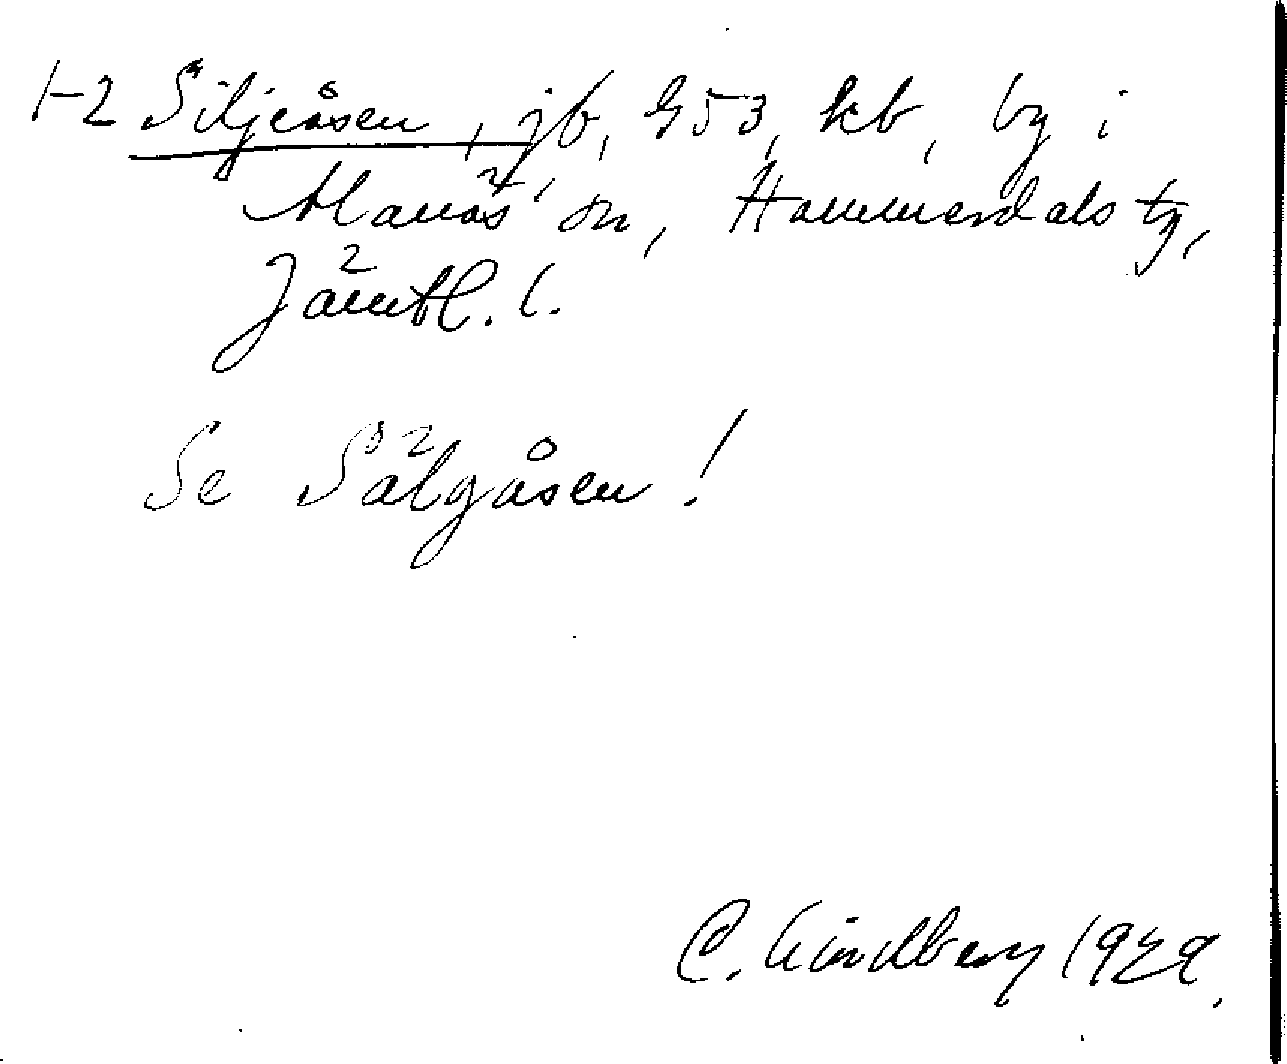 1-2 Siljeåsen, jb, G53, kb, by i
Alanäs sn, Hammerdals tg,
Jämtl. l.
Se Sälgåsen!
C. Lindberg 1929.